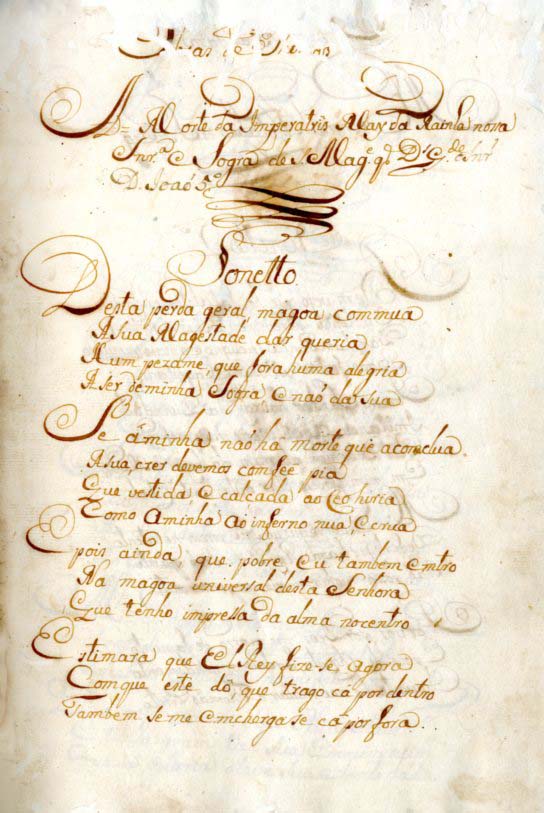 A= Morte da Imperatris May da Rainha nova
Snr.ª e Sogra de S. Mag.e q D.s G.de elnr
D. Joaõ 5.º
Sonetto.
Desta perda geral, magoa commua
A sua Magestade dar queria
Hum pezame, que fora huma alegria
A ser de minha Sogra e naõ da sua
Se á minha naõ há morte que a conclua
A sua crer devemos com feé pia
Que vestida, e calcada ao Ceo hiria
Como a minha ao inferno nua, e crua
E pois ainda que pobre, eu tambem entro
Na magoa universal desta Senhora
Que tenho impressa da alma no centro
Estimara que El Rey fize-se agora
Com que este dó, que trago cá por dentro
Tambem se me emchergasse cá por fora.